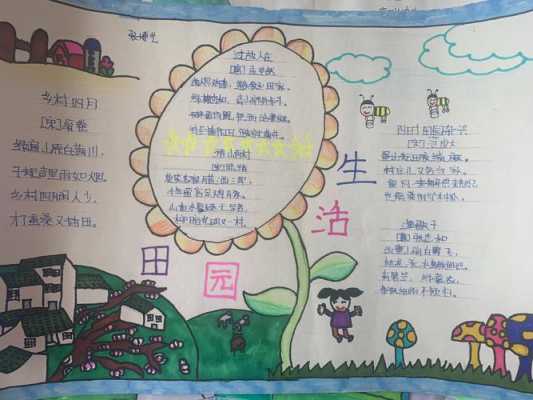 乡村四月
[宋]翁卷
绿遍山原白满川,
子规声里雨如烟。
乡村四月闲人少,
才了蚕桑又插田。
过故人庄
[唐]孟浩然
故人具鸡黍,邀我至田家。
绿树村边合,青山郭外斜。
开轩面场圃,把酒话桑麻。
待到重阳日,还来就菊花。
游山西村
[宋]陆游
莫笑农家腊酒浑,
丰年留客足鸡豚。
山重水复疑无路,
柳暗花明又一村。
田园生活
四时田园杂兴
[宋]范成大
昼出耘田夜绩麻,
村庄儿女各当家。
童孙未解供耕织
也傍桑阴学种瓜。
渔歌子
[唐]张志和
西塞山前白鹭飞,
桃花流水鳜鱼肥。
青箬笠,绿蓑衣,
斜风细雨不须归。